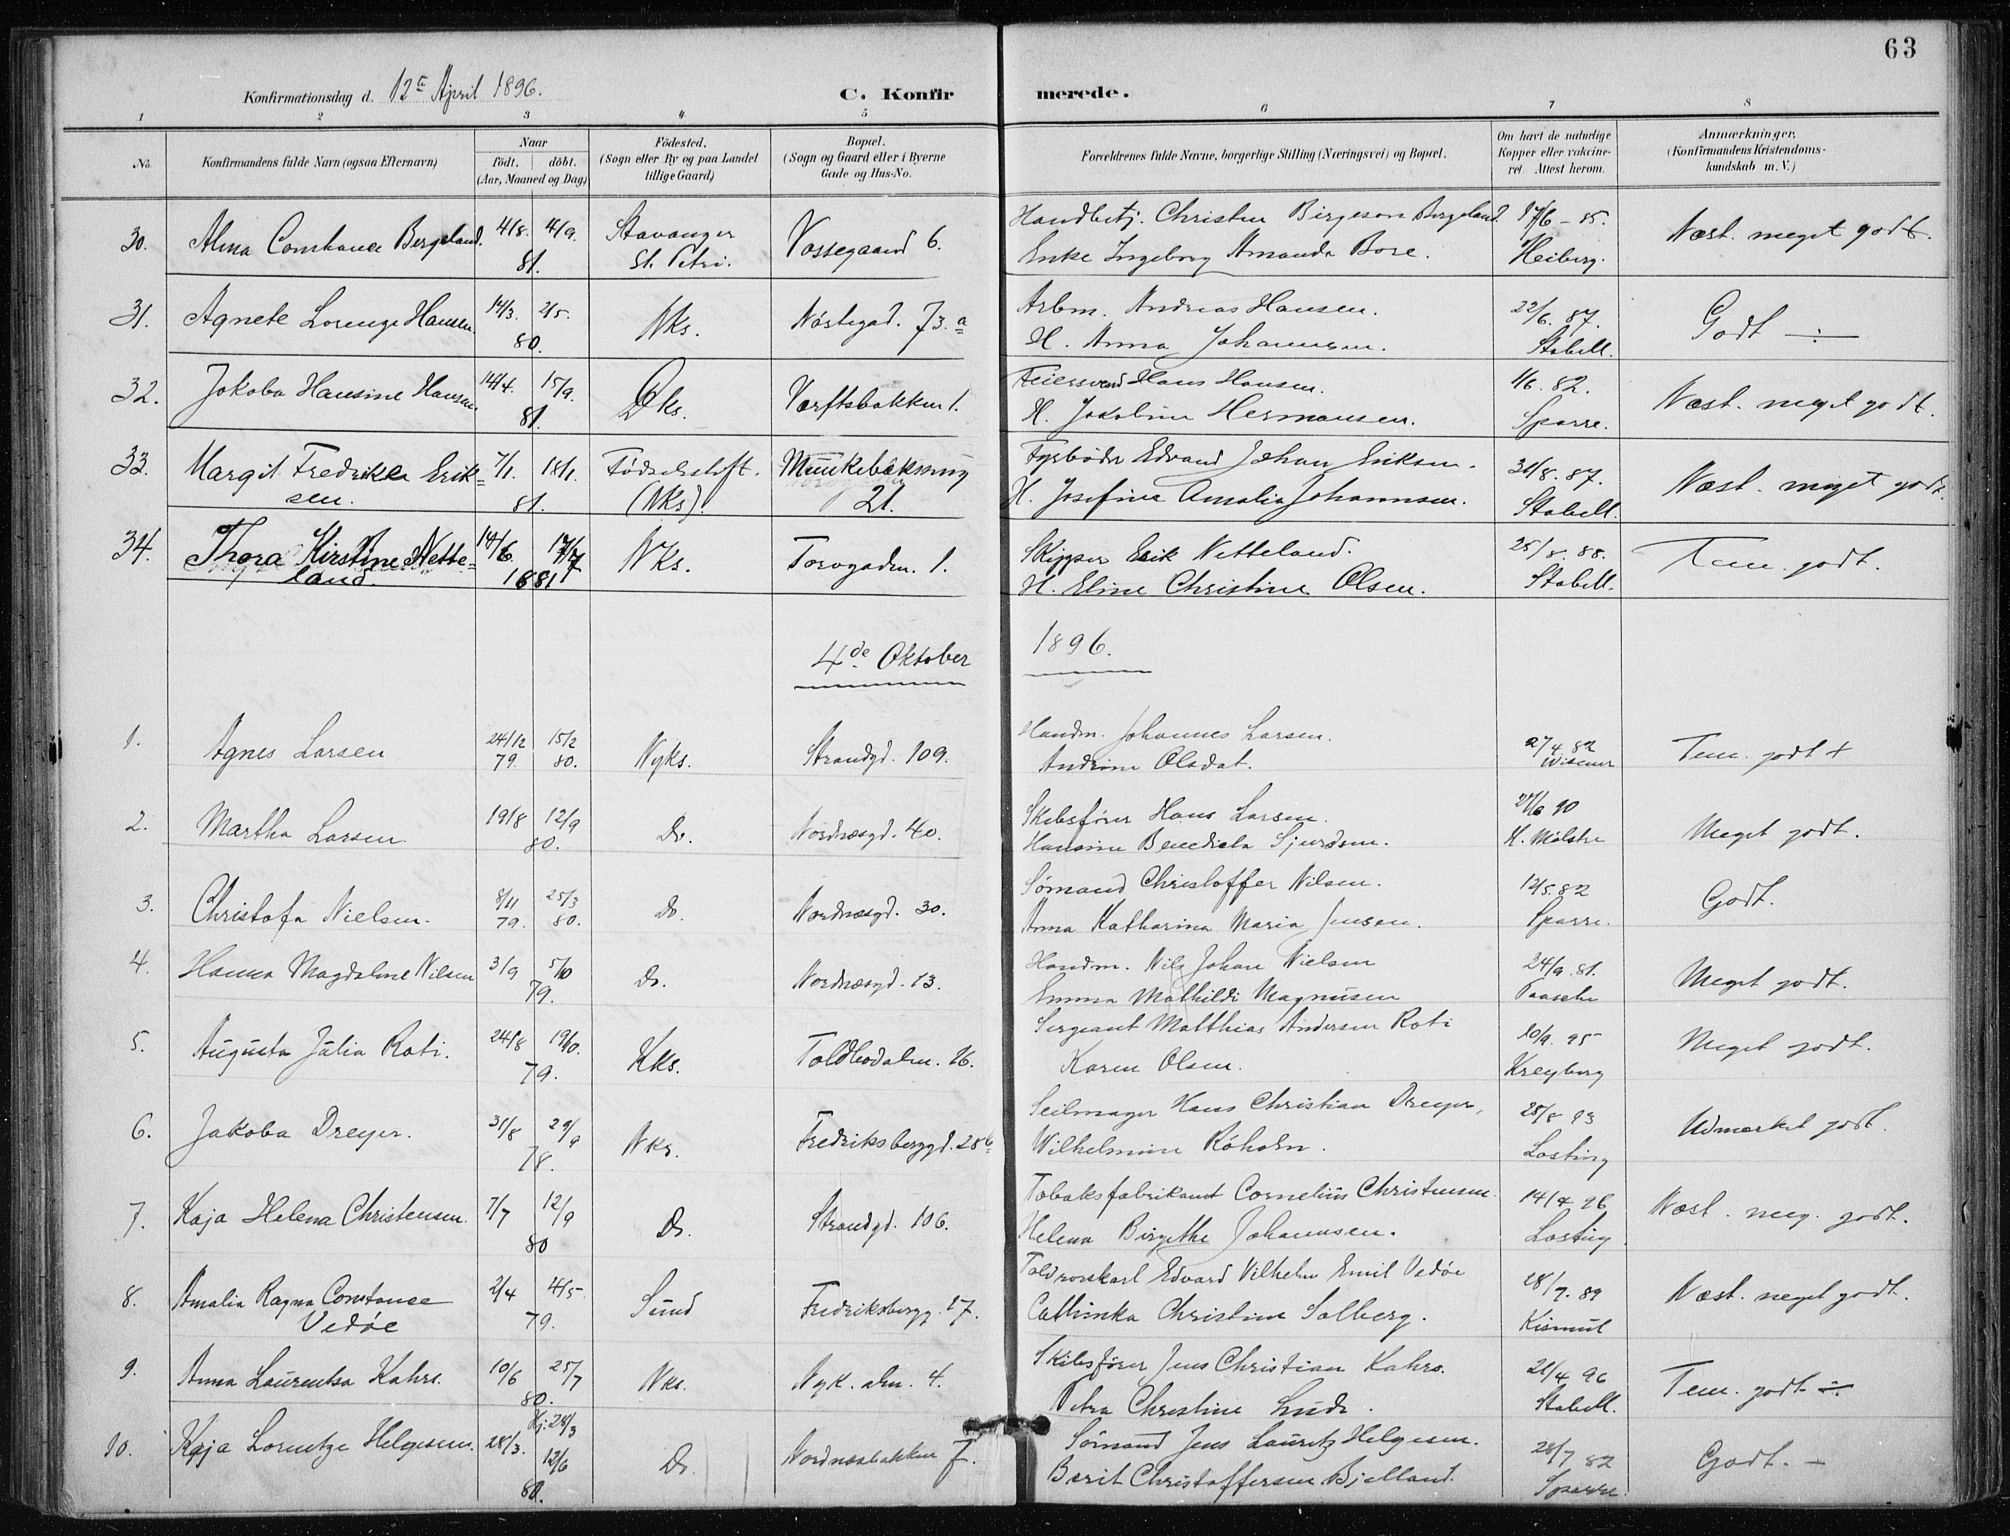 63
Konfirmationsdag d. 12te April 1896.
C. Konfirmerede.
1 2 3 4 5 6 7 8
No.
Konfirmandens fulde Navn (ogsaa Efternavn)
Naar
födt. döbt.
(Aar, Maaned og Dag)
Födested.
(Sogn eller By og paa Landet
tillige Gaard)
Bopæl.
(Sogn og Gaard eller i Byerne
Gade og Hus-No.
Forældrenes fulde Navne, borgerlige Stilling (Næringsvei) og Bopæl.
Om havt de naturlige
Kopper eller vakcine-
ret. Attest herom.
Anmærkninger.
(Konfirmandens Kristendoms-
kundskab m. V.)
30. Alma Constance Bergeland. 4/8. 4/9. 81. Stavanger St. Petri. Vossegaard 6.
Handbetj. Christen Birgeson Bergeland
Enke Ingeborg Amanda Bore. 17/6 - 85. Heiberg. Næst. meget godt.
31. Agnete Lorenze Hansen. 14/3. 2/5. 80. Nks. Nöstegad. 73.a
Arbm. Andreas Hansen.
H. Anna Johannesen. 22/6. 87. Stabell. Godt ÷
32. Jakoba Hansine Hansen 14/4. 15/9. 81. Dks. Værftsbakken 1.
Feiersvend Hans Hansen.
H. Jakobine Hermansen. 1/6. 82. Sparre. Næst. meget godt.
33. Margit Fredrikke Erik=
sen. 7/1. 18/1. 81. Födselsstift. (Nks). Munkebæksmug 21.
Fyrböder Edvard Johan Eriksen.
H. Josefine Amalia Johannsen. 31/8. 87. Stabell. Næst. meget godt.
34. Thora Kirstine Nette=
land. 14/6. 17/7 1881 Nks. Torvgaden. 1.
Skipper Erik Netteland.
H. Eline Christine Olsen. 25/8. 88. Stabell. Tem. godt.
4de Oktober 1896.
1. Agnes Larsen 24/12 79. 15/2 80. Nyks. Strandgd. 109.
Handm. Johannes Larsen.
Andrine Olsdat. 27/4 82 Wisener Tem. godt +
2. Martha Larsen. 19/8 12/9 80. Do. Nordnæsgd. 40.
Skibsförer Hans Larsen.
Hansine Benedicta Sjursen. 27/6 90 H. Mölstre Meget godt.
3. Christofa Nielsen. 8/11 79. 25/3 80. Do. Nordnæsgd. 30.
Sömand Christoffer Nilsen.
Anna Katharina Maria Jensen. 12/5. 82 Sparre. Godt.
4. Hanna Magdalene Nilsen 3/9 5/10 79. Do. Nordnæsgd. 13.
Handm. Nils Johan Nielsen
Emma Mathilde Magnusen 24/9. 81. Paasche Meget godt.
5. Augusta Julia Roti. 24/8 19/10. 79. Kks. Toldbodalm. 26.
Sergeant Matthias Andersen Roti
Karen Olsen. 10/9. 95 Kreyberg Meget godt.
6. Jakoba Dreyer. 31/8 29/9 78. Nks. Fredriksbergd. 28b
Seilmager Hans Christian Dreyer,
Wilhelmine Röholm. 28/8 93 Losting Udmærket godt.
7. Kaja Helena Christensen. 7/7 12/9 80 Do. Strandgd. 106.
Tobaksfabrikant Cornelius Christensen.
Helena Birgithe Johannsen. 14/4 96 Losting. Næst. meg. godt.
8. Amalia Ragna Constance
Vedöe 2/4 4/5 79. Sund Fredriksbergg. 17.
Toldroerskarl Edvard Vilhelm Emil Vedöe
Cathinka Christine Solberg. 28/7. 89 Kismul Næst. meget godt.
9. Anna Laurentsa Kahrs. 10/6 25/7 80. Nks. Nyk. alm. 4.
Skibsförer Jens Christian Kahrs.
Petra Christine Lude. 21/4 96 Stabell. Tem. godt ÷
10. Kaja Lorentze Helgesen. 28/3. Hj. 28/3 13/6 80. Do. Nordnæsbakken 7.
Sömand Jens Lauritz Helgesen.
Berit Christoffersen Bjelland. 28/7 82 Sparre. Godt. -